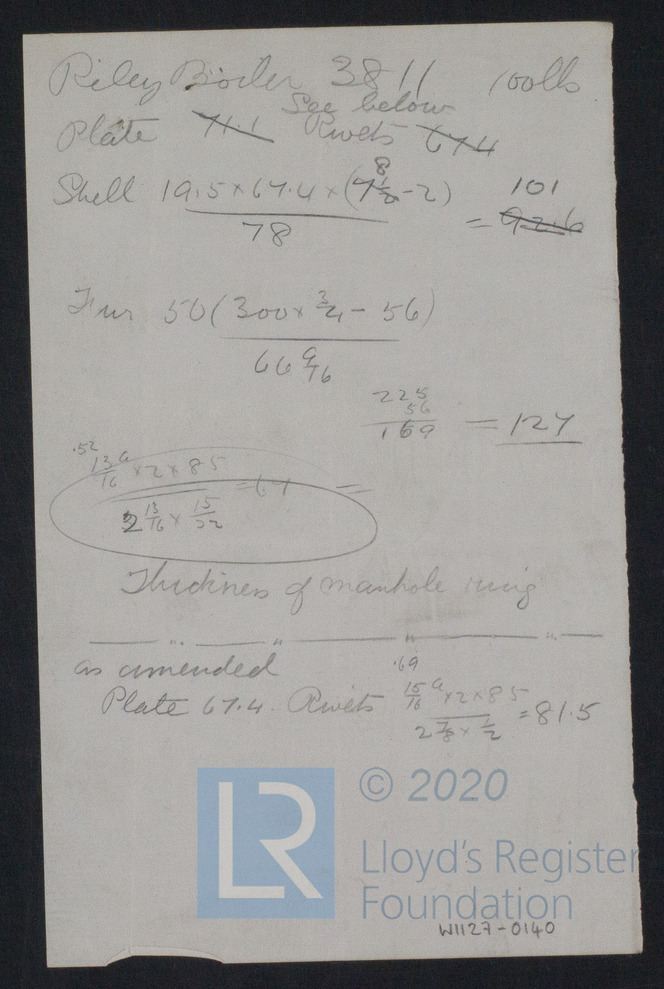 Riley Boiler 3811 100lb
See below
Plate 71.1 Rivets 67.4
Shell 19.5 × 67.4 × (7 1/2 8 - 2)
78
= 92.6 101
Fur 50 (300 × 3/4 - 56)
66 9/16
225
56
169 = 127
.52
13/16 a × 2 × 85
2 13/16 × 15/32
Thickness of manhole ring
as amended
.69
Plate 67.4. Rivets 15/16 a × 2 × 85 = 81.5
2 7/8 × 1/2
© 2020
LR
Lloyd's Register
Foundation
W1127-0140